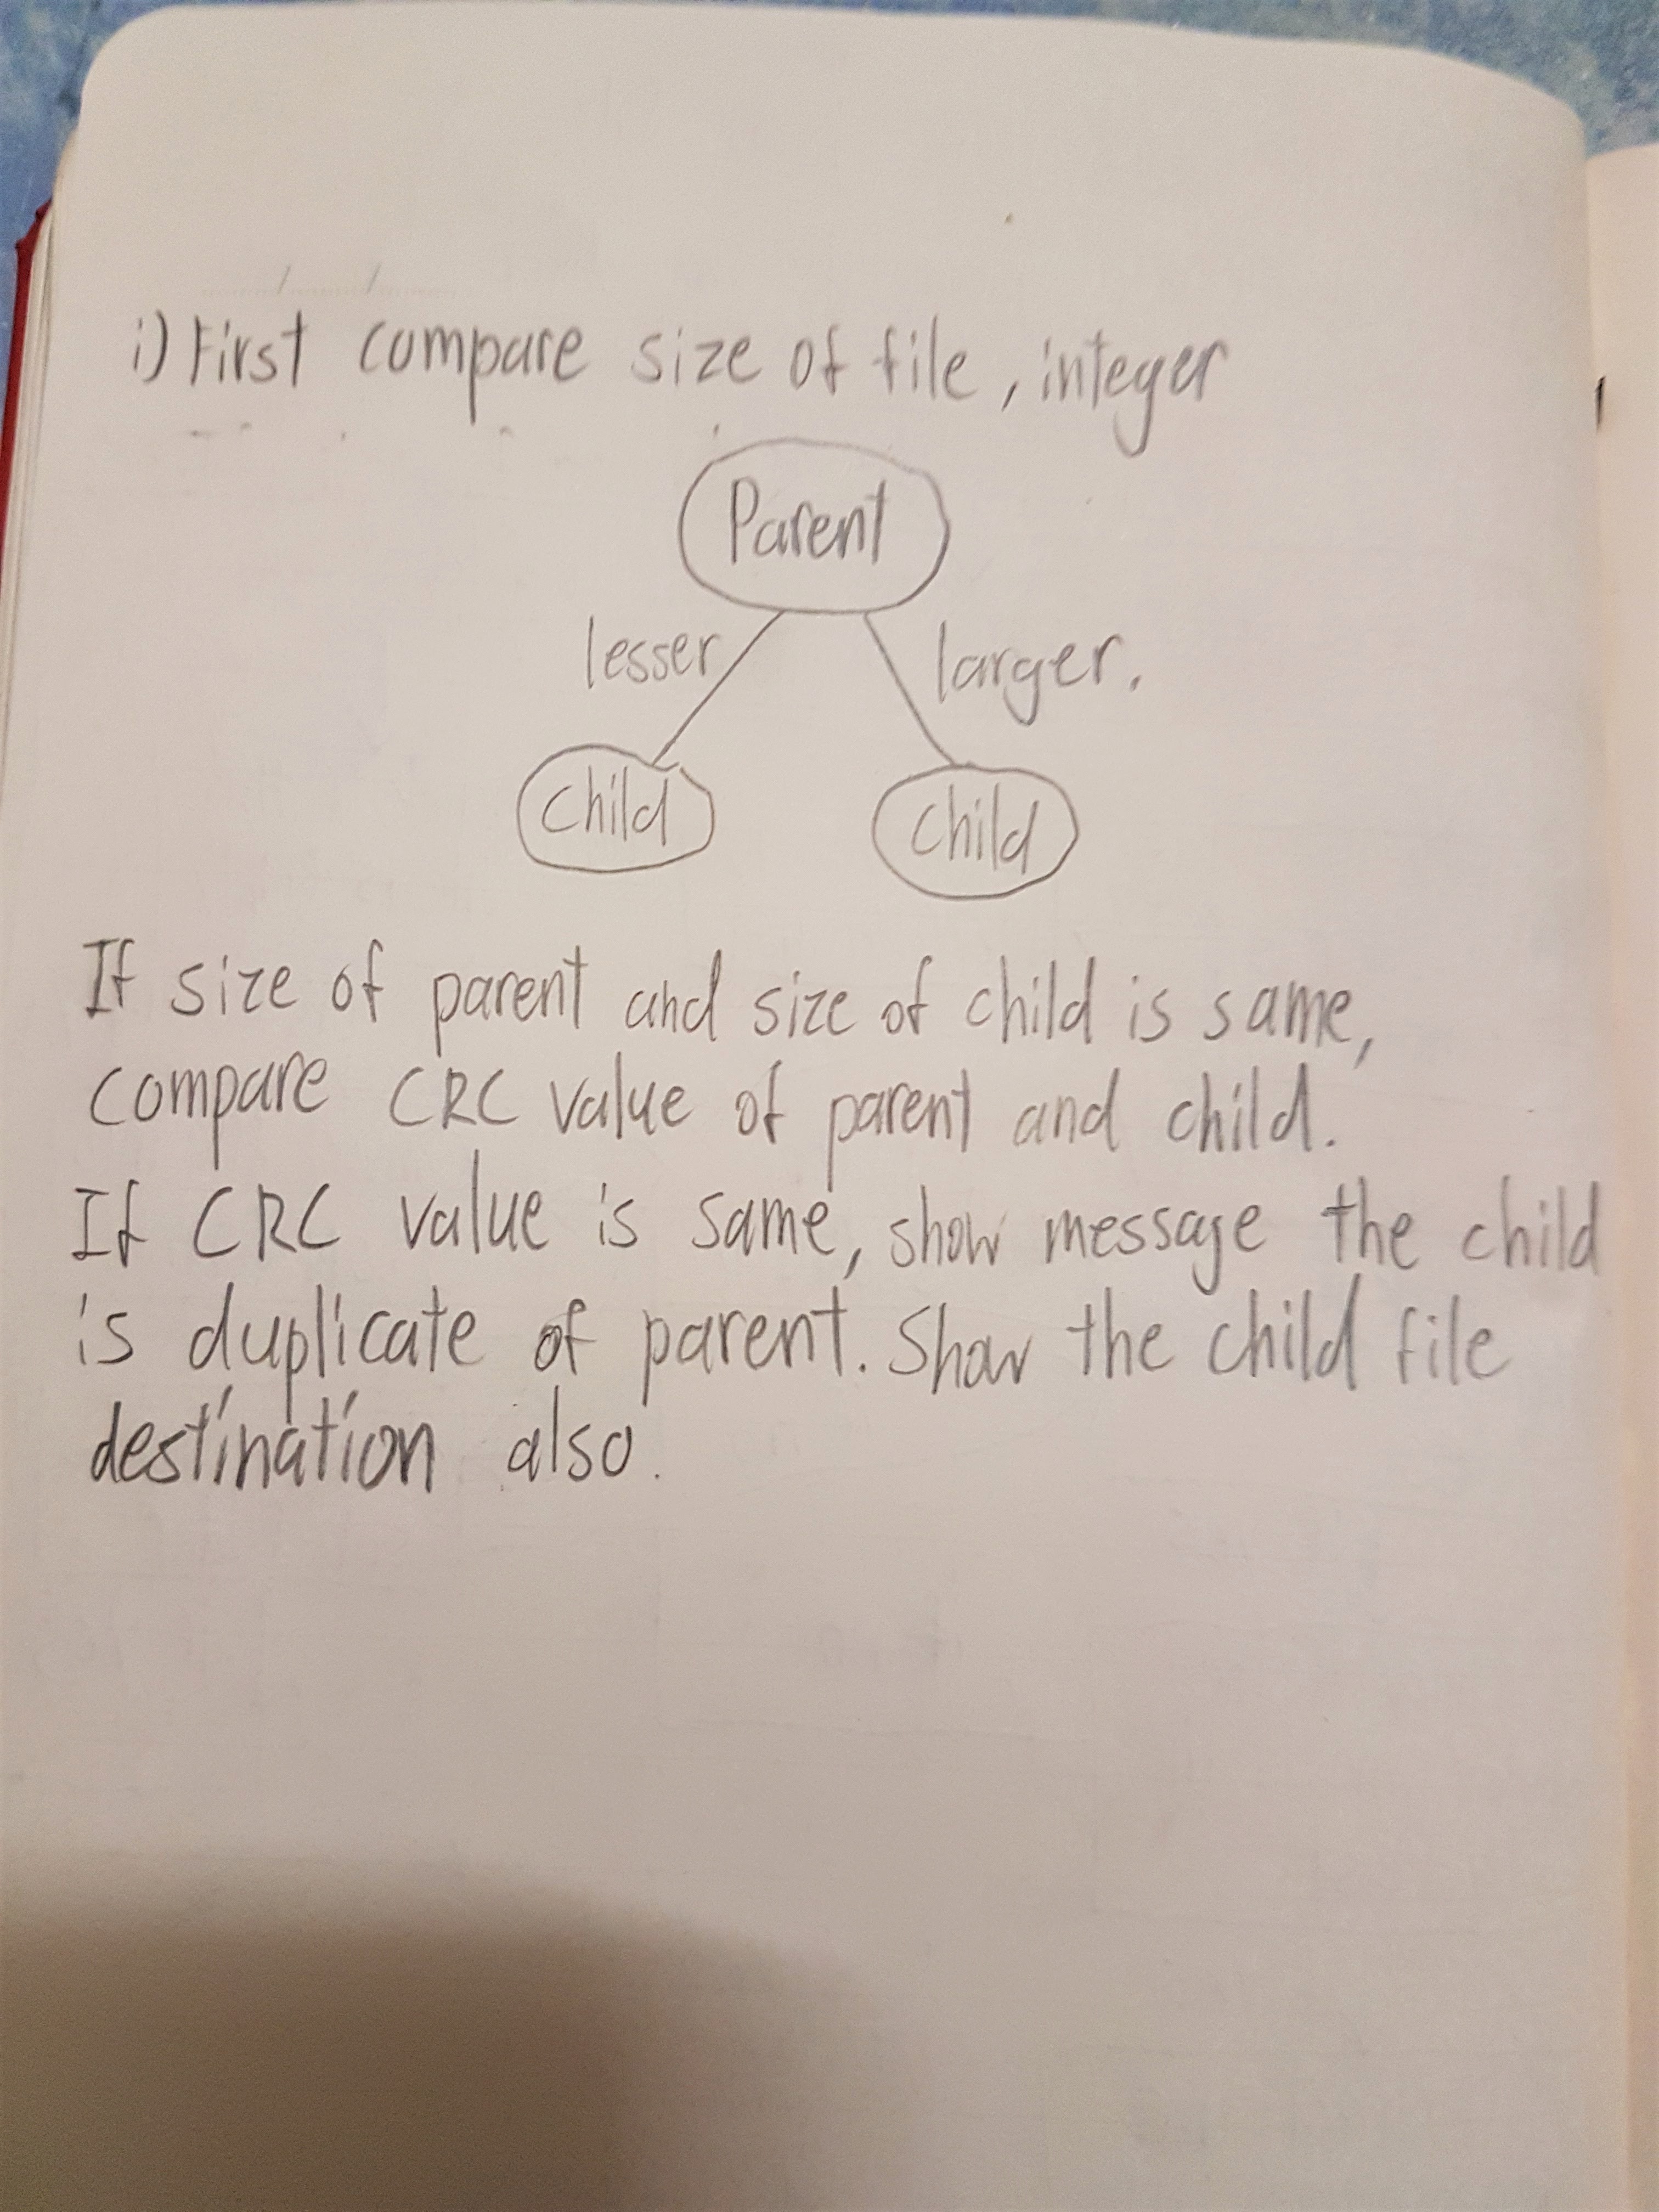 i) First compare size of file, integer
Parent
lesser
larger.
child
child
If size of parent and size of child is same,
compare CRC value of parent and child.
If CRC value is same, show message the child
is duplicate of parent. Show the child file
destination also.